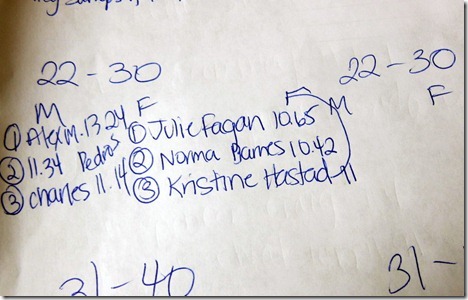 22-30
22-30
M F F M
F
① Alex M. 13.24 ① Julie Fagan 10.65
② 11.34 Pedro S ② Norma Barnes 10.42
③ Charles 11.14 ③ Kristine Hastad 11
31-40
31-